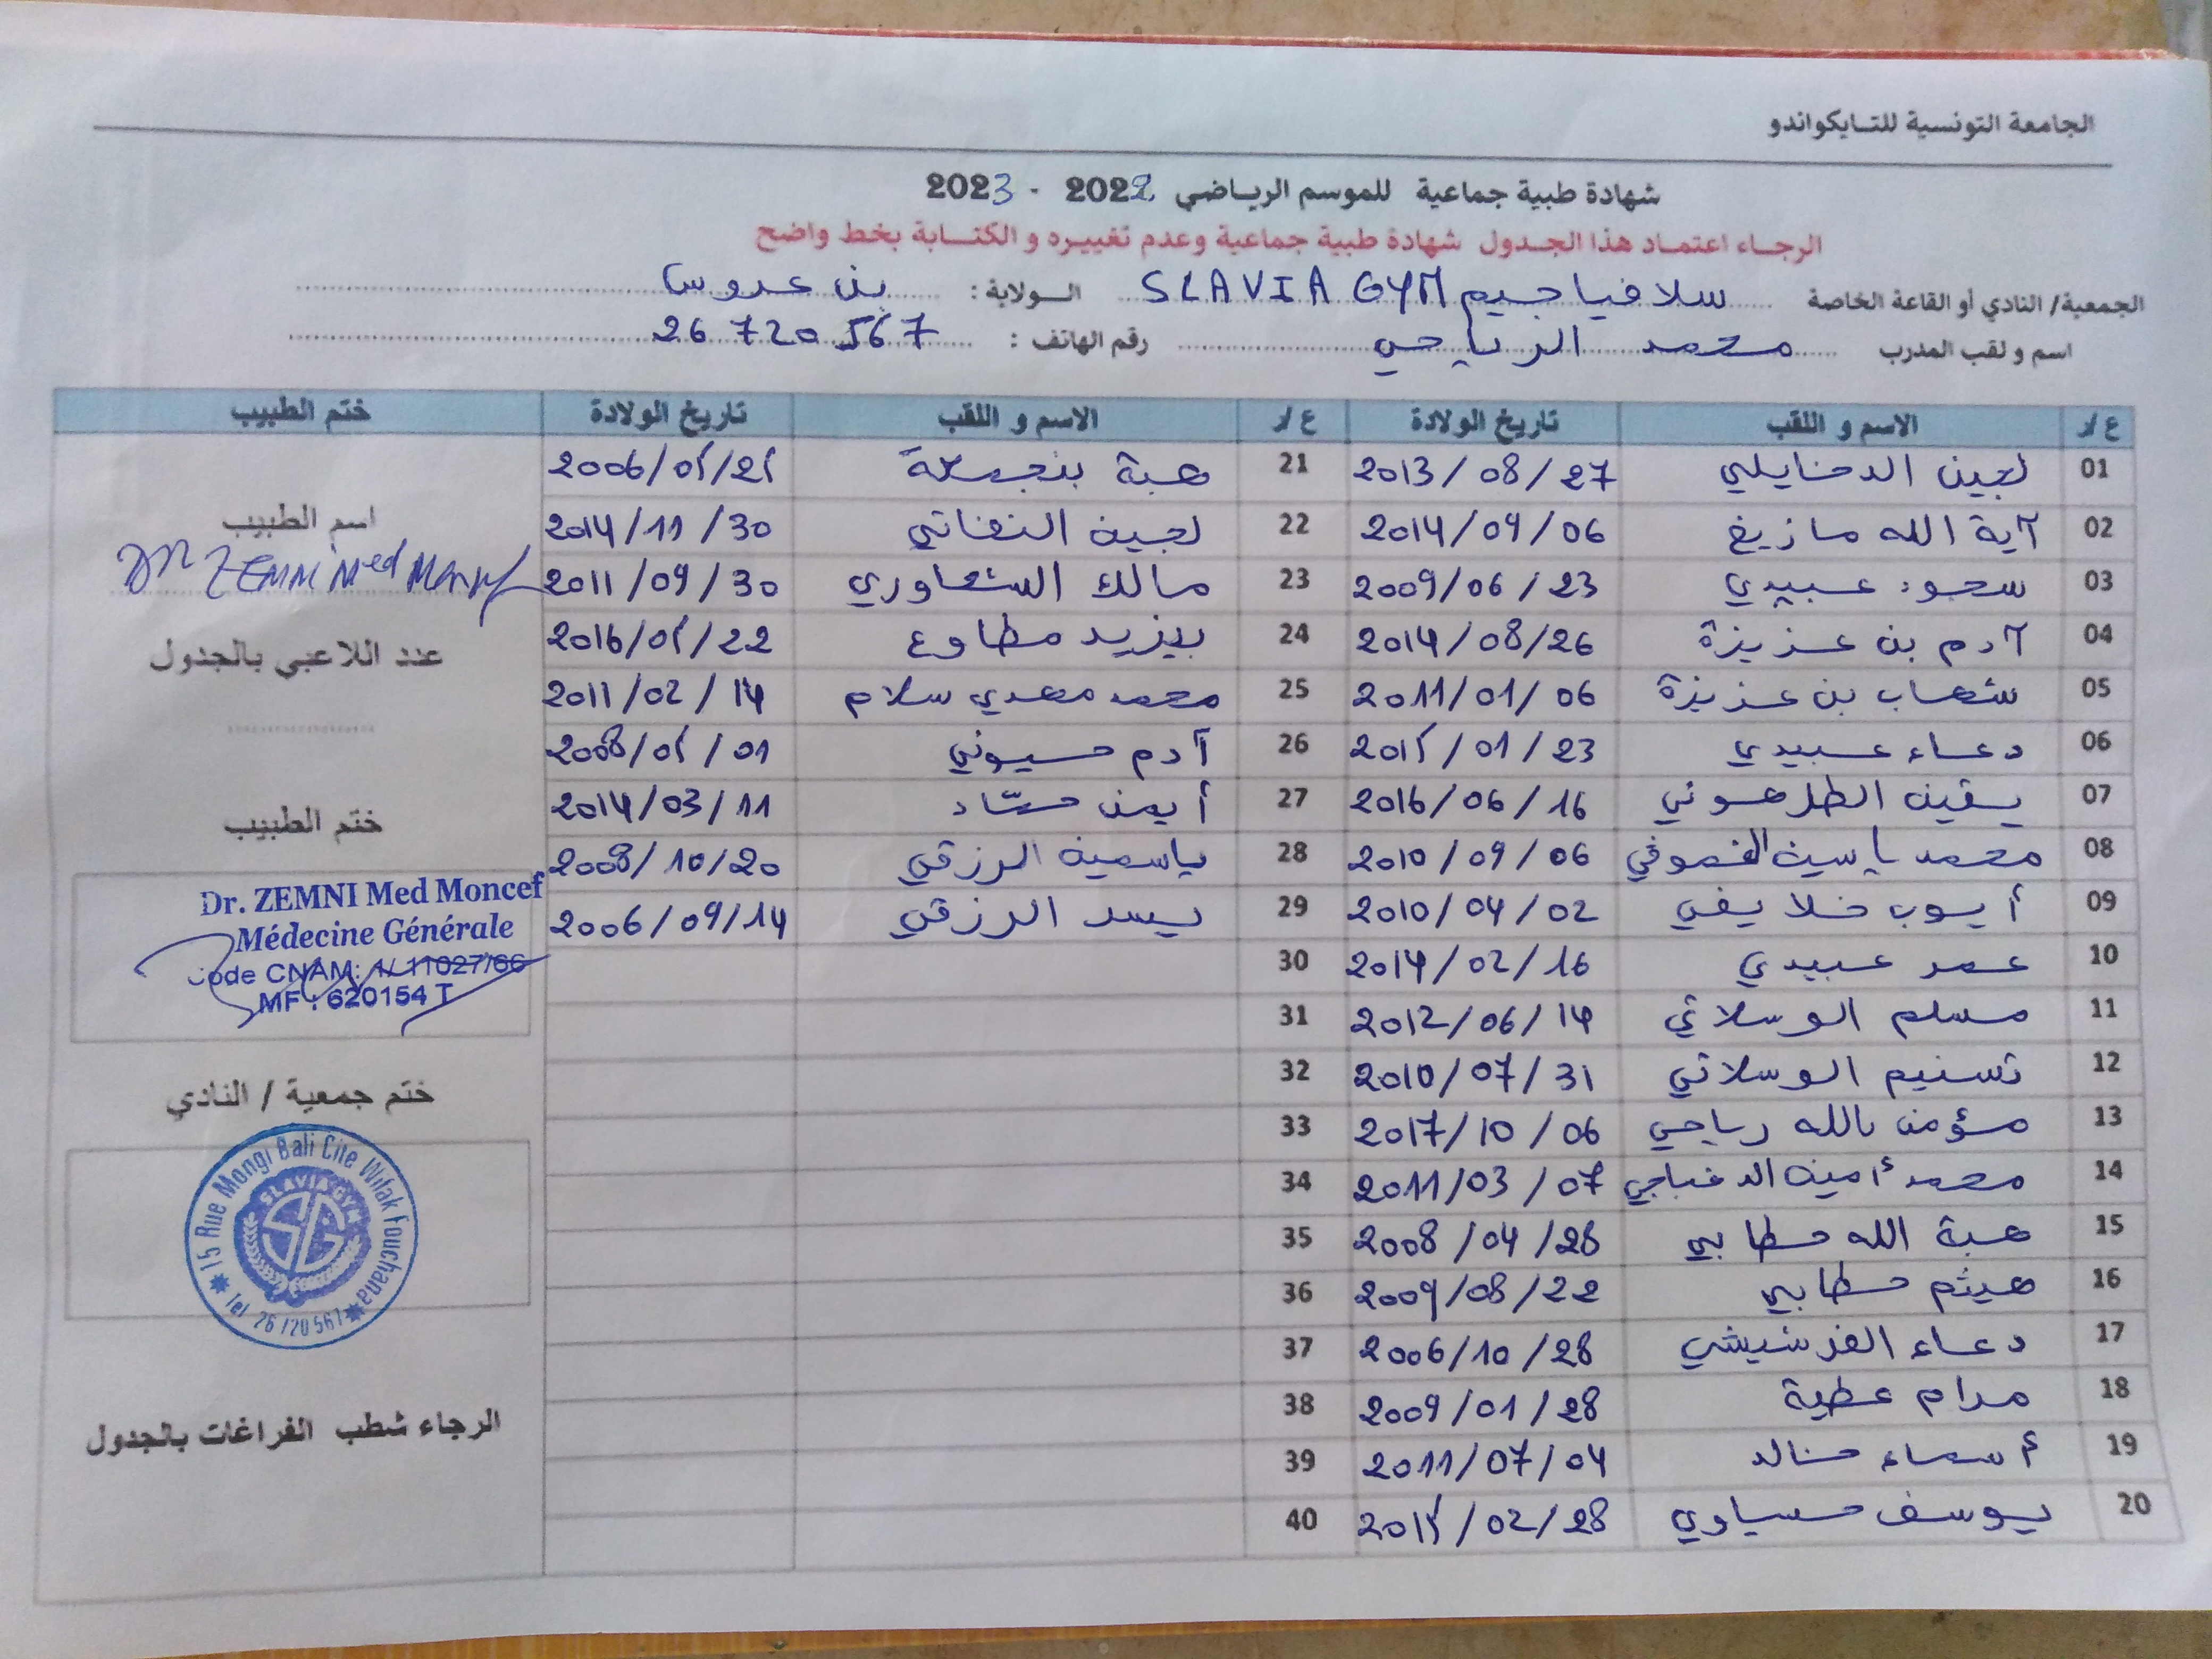 الجامعة التونسية للتايكواندو
شهادة طبية جماعية للموسم الرياضي 2022 - 2023
الرجاء اعتماد هذا الجدول شهادة طبية جماعية وعدم تغييره و الكتابة بخط واضح
الجمعية/ النادي أو القاعة الخاصة سلافيا جيم SLAVIA GYM الولاية: بن عروس
اسم و لقب المدرب محمد الرياحي رقم الهاتف: 26 720 567
ع/ر الاسم و اللقب تاريخ الولادة ع/ر الاسم و اللقب تاريخ الولادة ختم الطبيب
01 لجين الدخايلي 2013/08/27
02 آية الله مازيغ 2014/09/06
03 سجود عبيدي 2009/06/23
04 آدم بن عزيزة 2014/08/26
05 شهاب بن عزيزة 2011/01/06
06 دعاء عبيدي 2015/01/23
07 يقين الطرهوني 2016/06/16
08 محمد ياسين 2010/09/06
09 أيوب خلايفي 2010/04/02
10 عمر عبيدي 2014/02/16
11 مسلم الوسلاتي 2012/06/14
12 تسنيم الوسلاتي 2010/07/31
13 مؤمن بالله رياحي 2017/10/06
14 محمد أمين الدغباجي 2011/03/07
15 هبة الله حطابي 2008/04/28
16 هيثم حطابي 2009/08/22
17 دعاء الفرشيشي 2006/10/28
18 مرام عطية 2009/01/28
19 أسماء خالد 2011/07/04
20 يوسف عيساوي 2015/02/28
21 هبة بنجمعة 2006/05/25
22 لجين النفاتي 2014/11/30
23 مالك السعاوري 2011/09/30
24 يزيد مطاوع 2016/05/22
25 محمد مهدي سلام 2011/02/14
26 آدم حسيوني 2008/05/01
27 أيمن حداد 2014/03/11
28 ياسمين الرزقي 2008/10/20
29 يسر الرزقي 2006/09/14
30
31
32
33
34
35
36
37
38
39
40
اسم الطبيب
DR ZEMNI Med Moncef
عدد اللاعبي بالجدول
ختم الطبيب
Dr. ZEMNI Med Moncef
Médecine Générale
Code CNAM: 1/ 11027/66
MF : 620154 T
ختم جمعية / النادي
15 Rue Mongi Bali Cite Wifak Fouchana
SLAVIA GYM
SG
Tel 26 720 567
الرجاء شطب الفراغات بالجدول